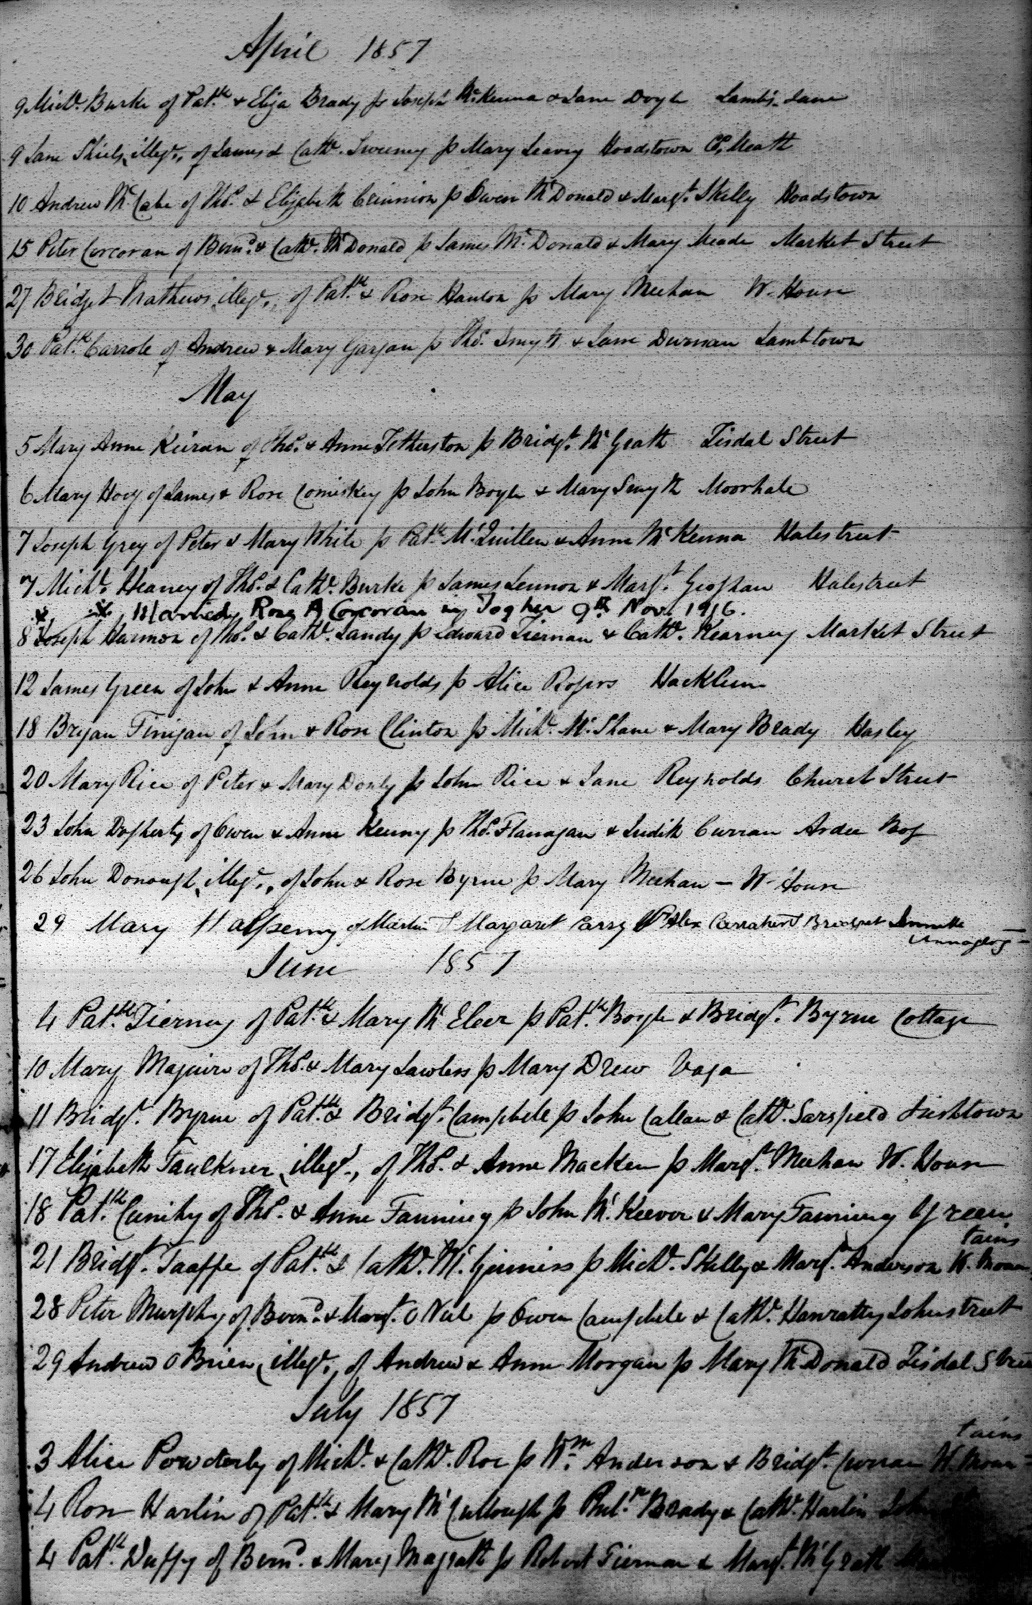 April 1857
9 Michl. Burke of Patk. & Eliza Brady p Joseph McKenna & Jane Doyle Lambs Lane
9 Jane Shiels, illegr., of James & Cathe. Sweeney p Mary Leavy Hoadstown Co. Meath
10 Andrew McCabe of Thos. & Elizabeth Crinnion p Owen McDonald & Margt. Skelly Hoadstown
15 Peter Corcoran of Bernd. & Cathe. McDonald p James McDonald & Mary Meade Market Street
27 Bridget Mathews, illegr., of Patk. & Rose Hanlon p Mary Meehan W. House
30 Patk. Carrole of Andrew & Mary Gargan p Thos. Smyth & Jane Durnan Lambtown
May
5 Mary Anne Keiran of Thos. & Anne Fetherston p Bridgt. McGrath Tisdal Street
6 Mary Hoey of James & Rose Comiskey p John Boyle & Mary Smyth Moorhale
7 Joseph Grey of Peter & Mary White p Patk. McQuillen & Anne McKenna Halestreet
7 Michl. Heaney of Thos. & Cathe. Burke p James Lennon & Margt. Geoghan Halestreet
* * Married Rose A Corcoran in Togher 9th Nov. 1916.
8 Joseph Harmon of Thos. & Cathe. Landy p Edward Tiernan & Cathe. Kearney Market Street
12 James Green of John & Anne Reynolds p Alice Rogers Hacklim
18 Bryan Finigan of John & Rose Clinton p Michl. McShane & Mary Brady Hasley
20 Mary Rice of Peter & Mary Donly p John Rice & Jane Reynolds Church Street
23 John Dogherty of Owen & Anne Kenny p Thos. Flanagan & Judith Curran Ardee Bog
26 John Donough, illegr., of John & Rose Byrne p Mary Meehan — W. House
29 Mary Halfpenny of Martin & Margaret Carry P Alex Carraher & Bridget
Annaglog
June 1857
4 Patk. Tierney of Patk. & Mary McEleer p Patk. Boyle & Bridgt. Byrne Cottage
10 Mary Maguire of Thos. & Mary Lawless p Mary Drew Vaga
11 Bridgt. Byrne of Patk. & Bridgt. Campbele p John Callan & Cathe. Sarsfield Irishtown
17 Elizabeth Faulkner, illegr., of Thos. & Anne Macken p Margt. Meehan W. House
18 Patk. Cunihy of Thos. & Anne Fanning p John McKeever & Mary Fanning Green
21 Bridgt. Taaffe of Patk. & Cathe. McGinniss p Michl. Skelly & Margt. Anderson W. Mountains
28 Peter Murphy of Bernd. & Margt. O Neil p Owen Campbele & Cathe. Hanratty Johnstreet
29 Andrew O Brien, illegr., of Andrew & Anne Morgan p Mary McDonald Tisdal Street
July 1857
3 Alice Powderly of Michl. & Cathe. Roe p Wm. Anderson & Bridgt. Curran W. Mountains
4 Rose Harlin of Patk. & Mary McCullough p Brady & Cathe. Harlin
4 Patk. Duffy of Bernd. & Mary Magrath p Robert Tiernan & Margt. McGrath